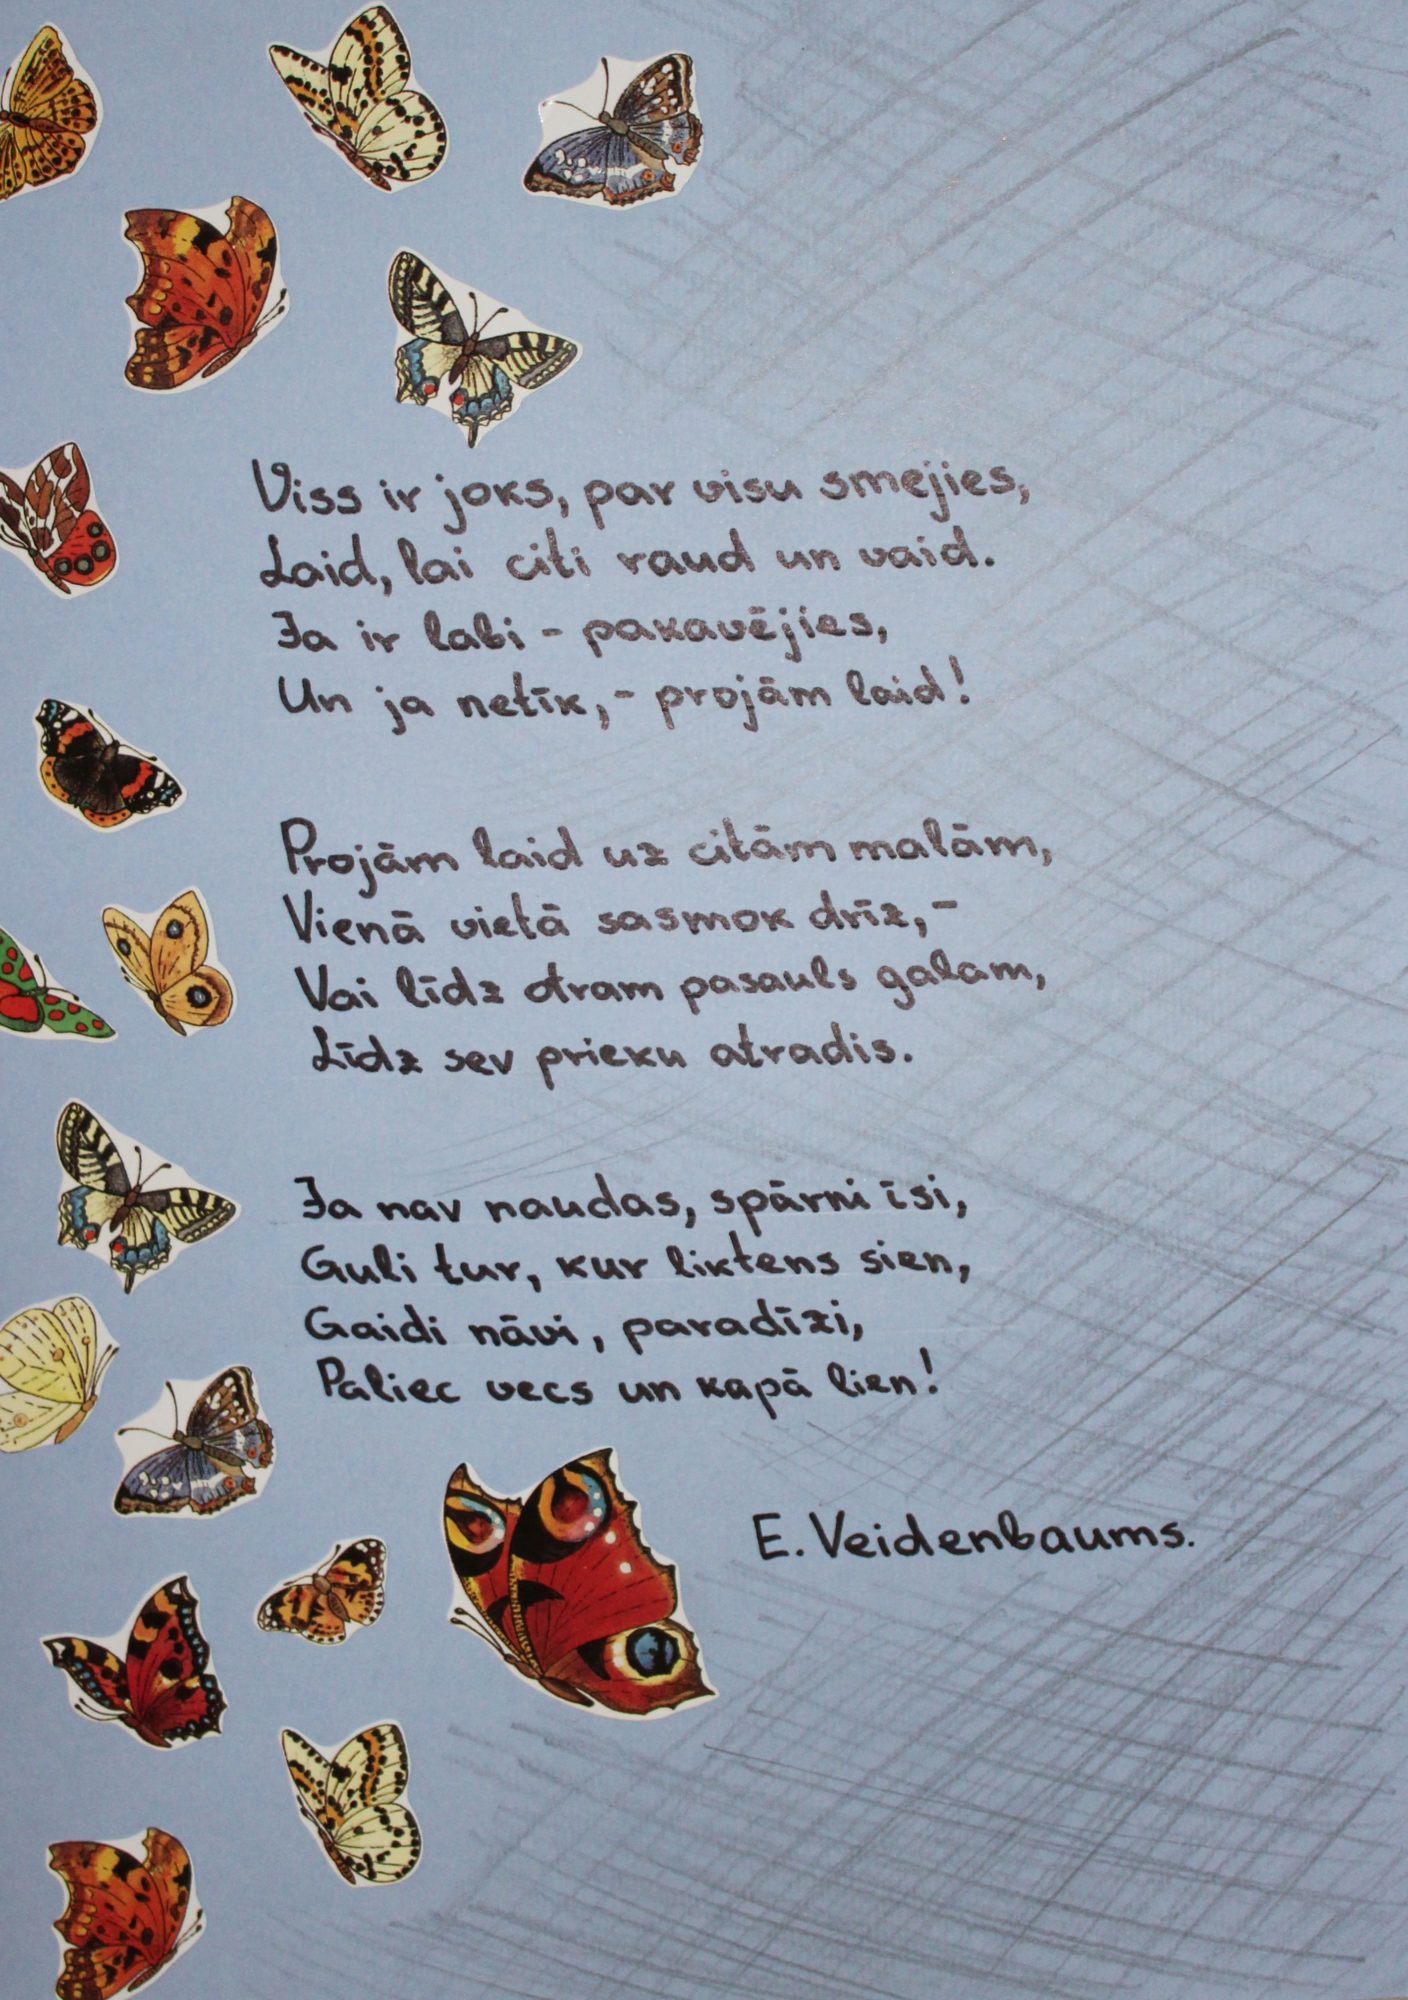 Viss ir joks, par visu smejies,
Laid, lai citi raud un vaid.
Ja ir labi - pakavējies,
Un ja netīk,- projām laid!
Projām laid uz citām malām,
Vienā vietā sasmok drīz,-
Vai līdz otram pasauls galam,
Līdz sev prieku atradis.
Ja nav naudas, spārni īsi,
Guli tur, kur liktens sien,
Gaidi nāvi, paradīzi,
Paliec vecs un kapā lien!
E. Veidenbaums.